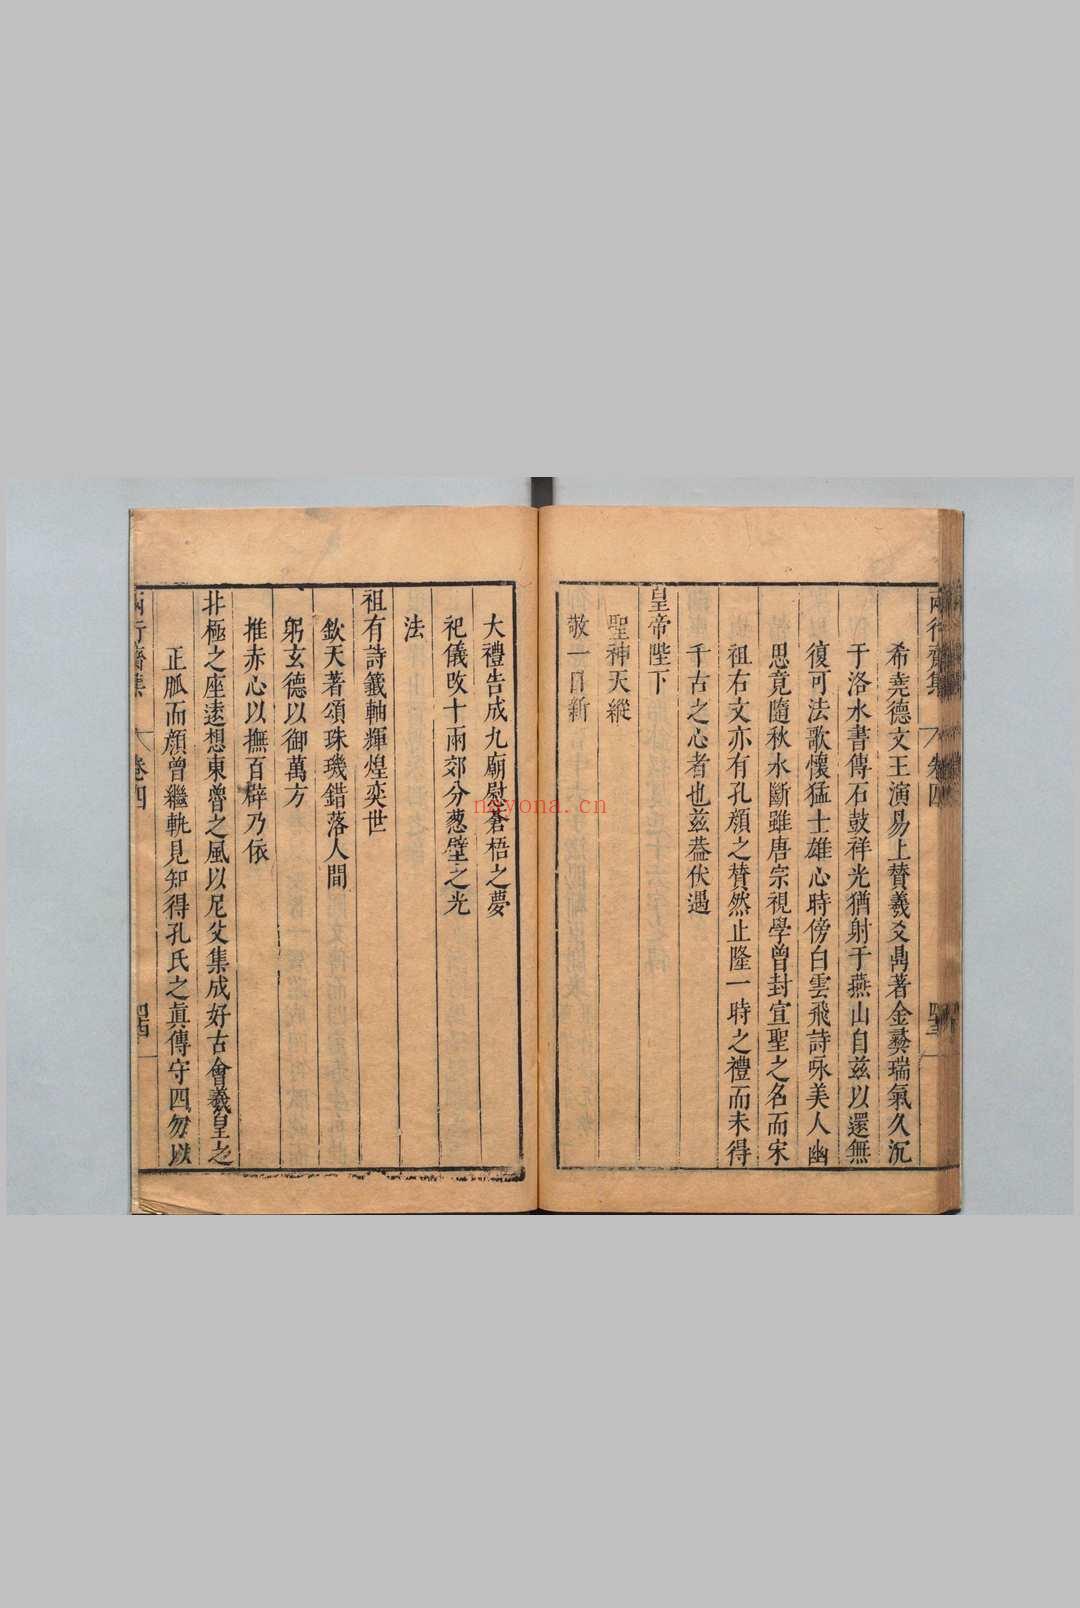 兩行齋集
卷四
希堯德文王演易上賛羲爻鼎著金彛瑞氣久沉
于洛水書傳石鼓祥光猶射于燕山自兹以還無
復可法歌懷猛士雄心時傍白雲飛詩咏美人幽
思竟隨秋水斷雖唐宗視學曾封宣聖之名而宋
祖右文亦有孔顔之賛然止隆一時之禮而未得
千古之心者也兹葢伏遇
皇帝陛下
聖神天縱
敬一日新
大禮告成九廟慰蒼梧之夢
祀儀攺十兩郊分葱璧之光
法
祖有詩籤軸輝煌奕世
欽天著頌珠璣錯落人間
躬玄德以御萬方
推赤心以撫百辟乃依
北極之座逺想東魯之風以尼父集成好古會羲皇之
正脈而顔曾繼軌見知得孔氏之眞傳守四勿以
兩行齋集
卷四
nayona.cn